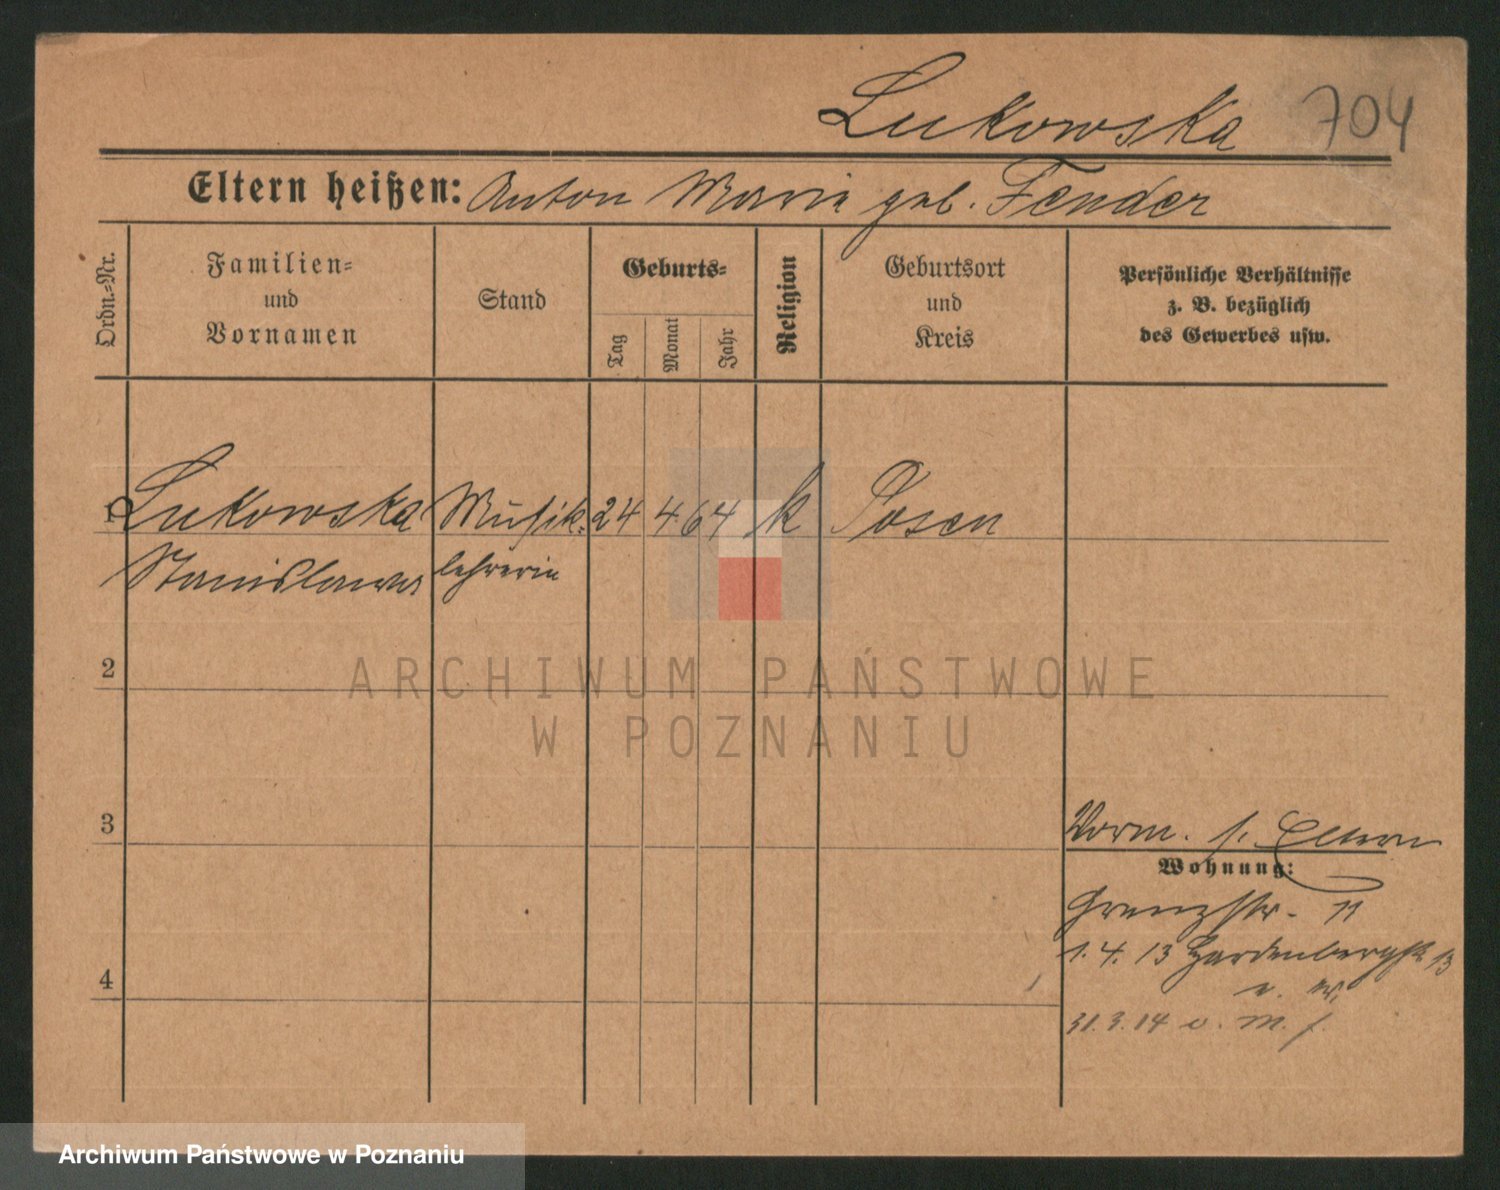 Lukowska 704
Eltern heißen: Anton Marie geb. Fender
Ordn.=Nr.
Familien=
und
Vornamen
Stand
Geburts=
Tag
Monat
Jahr
Religion
Geburtsort
und
Kreis
Persönliche Verhältnisse
z. B. bezüglich
des Gewerbes usw.
1 Lukowska Musik= 24 4 64 k Posen
Stanislawa lehrerin
2
ARCHIWUM PAŃSTWOWE
W POZNANIU
3
Vorm. s. Eltern
Wohnung:
Grenzstr. 11
1. 4. 13 Hardenbergstr 13
4
31. 3. 14 v. M. f.
Archiwum Państwowe w Poznaniu